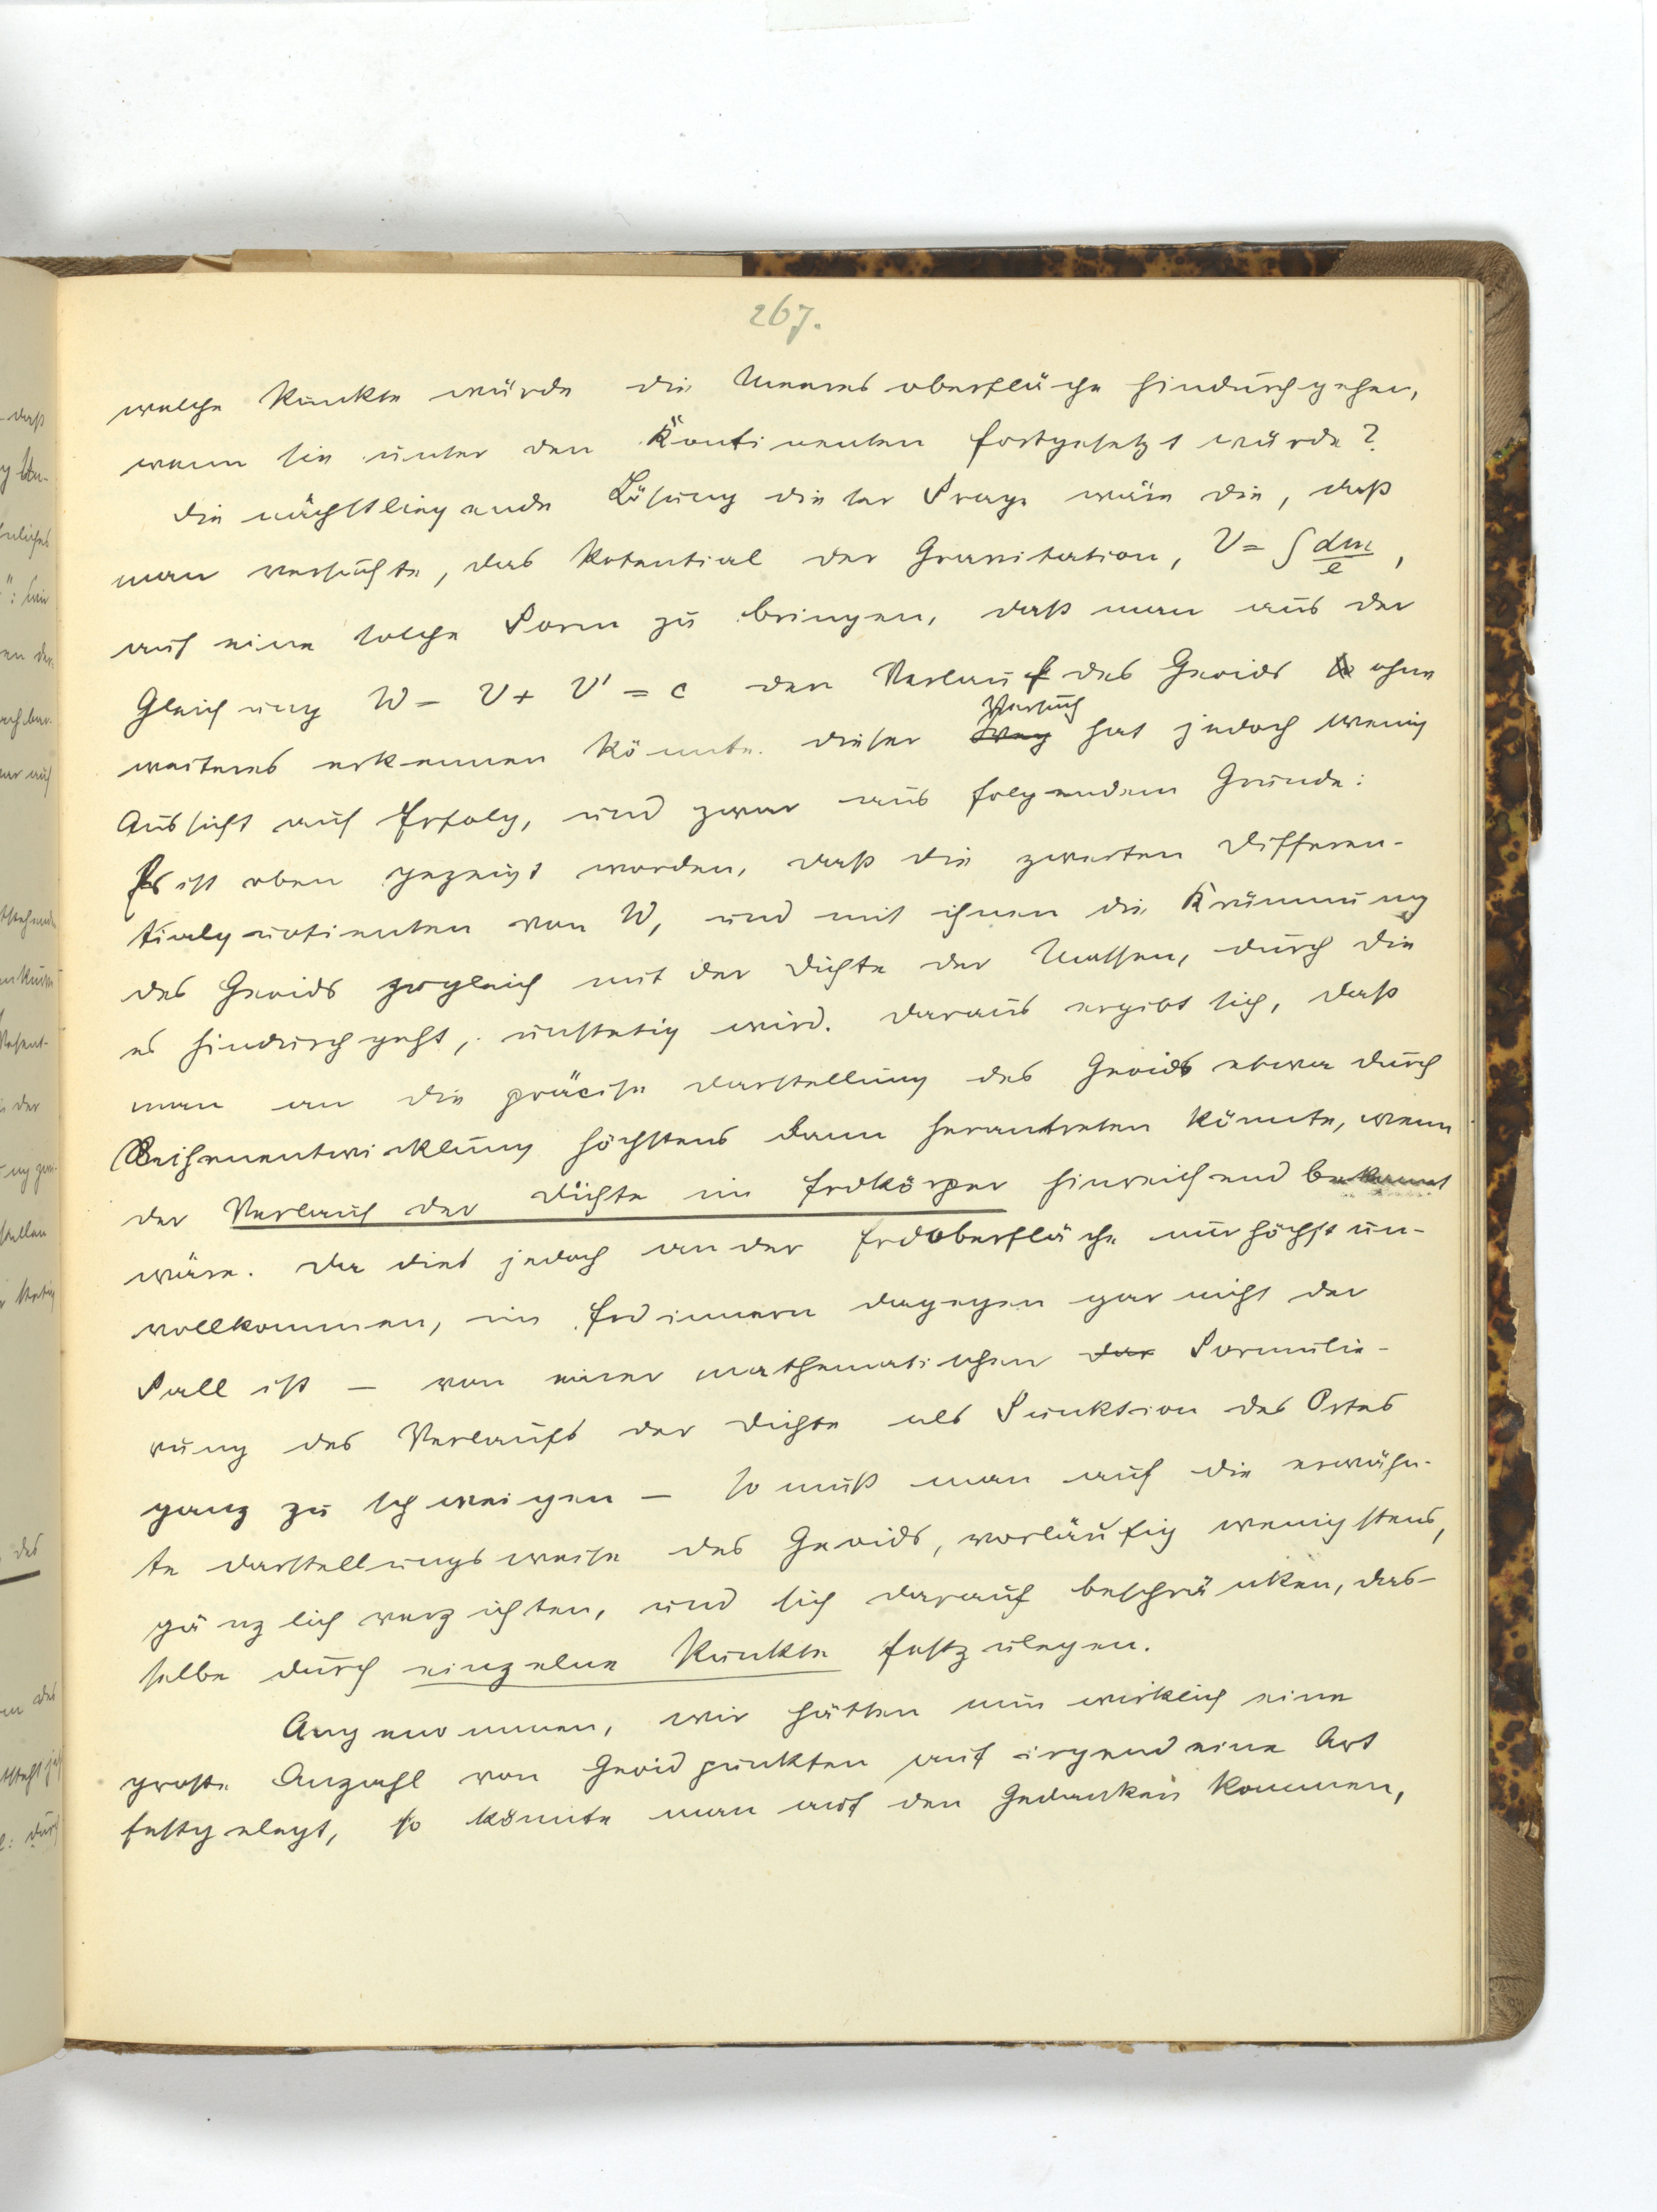 267.
welche Punkte würde die Meeresoberfläche hindurchgehen,
wenn sie unter den Kontinenten fortgesetzt würde?
Die nächstliegende Lösung dieser Frage wäre die, daß
man versuchte, das Potential der Gravitation, V = ∫ dm/e,
auf eine solche Form zu bringen, daß man aus der
Gleichung W = V + V' = c den Verlauf des Geoids ohne
weiteres erkennen könnte. Dieser Weg Versuch hat jedoch wenig
Aussicht auf Erfolg, und zwar aus folgendem Grunde:
Es ist oben gezeigt worden, daß die zweiten Differen-
tialquotienten von W, und mit ihnen die Krümmung
des Geoids zugleich mit der Dichte der Massen, durch die
es hindurchgeht, unstetig wird. Daraus ergibt sich, daß
man an die präcise Darstellung des Geoids etwa durch
Reihenentwicklung höchstens dann herantreten könnte, wenn
der Verlauf der Dichte im Erdkörper hinreichend bekannt
wäre. Da dies jedoch an der Erdoberfläche nur höchst un-
vollkommen, im Erdinnern dagegen gar nicht der
Fall ist — von einer mathematischen der Formulie-
rung des Verlaufs der Dichte als Funktion des Ortes
ganz zu schweigen — so muß man auf die erwähn-
te Darstellungsweise des Geoids, vorläufig wenigstens,
gänzlich verzichten, und sich darauf beschränken, das-
selbe durch einzelne Punkte festzulegen.
Angenommen, wir hätten nun wirklich eine
große Anzahl von Geoidpunkten auf irgend eine Art
festgelegt, so könnte man auf den Gedanken kommen,